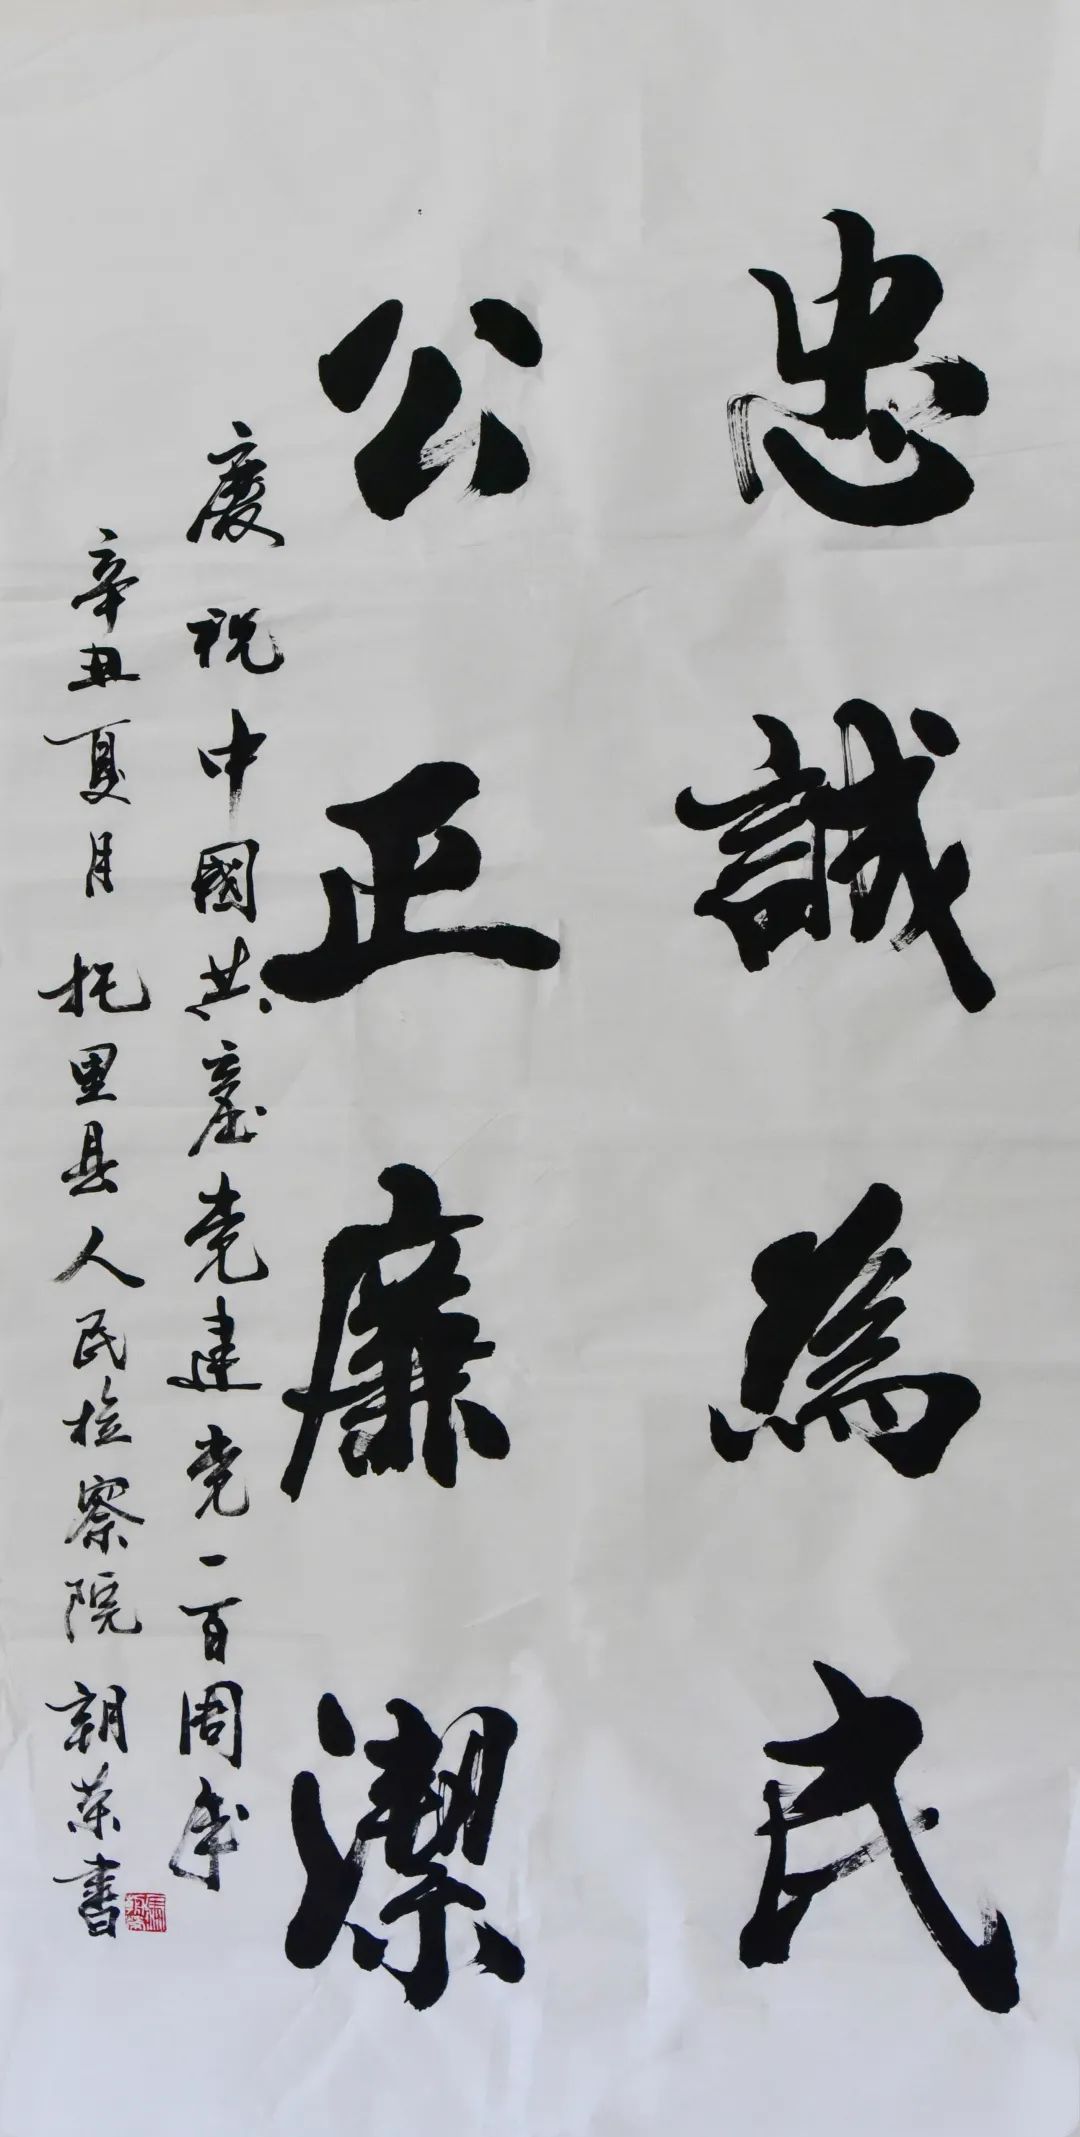 忠誠為民
公正廉潔
慶祝中國共產党建党一百周年
辛丑夏月 托里县人民检察院 朝荣書